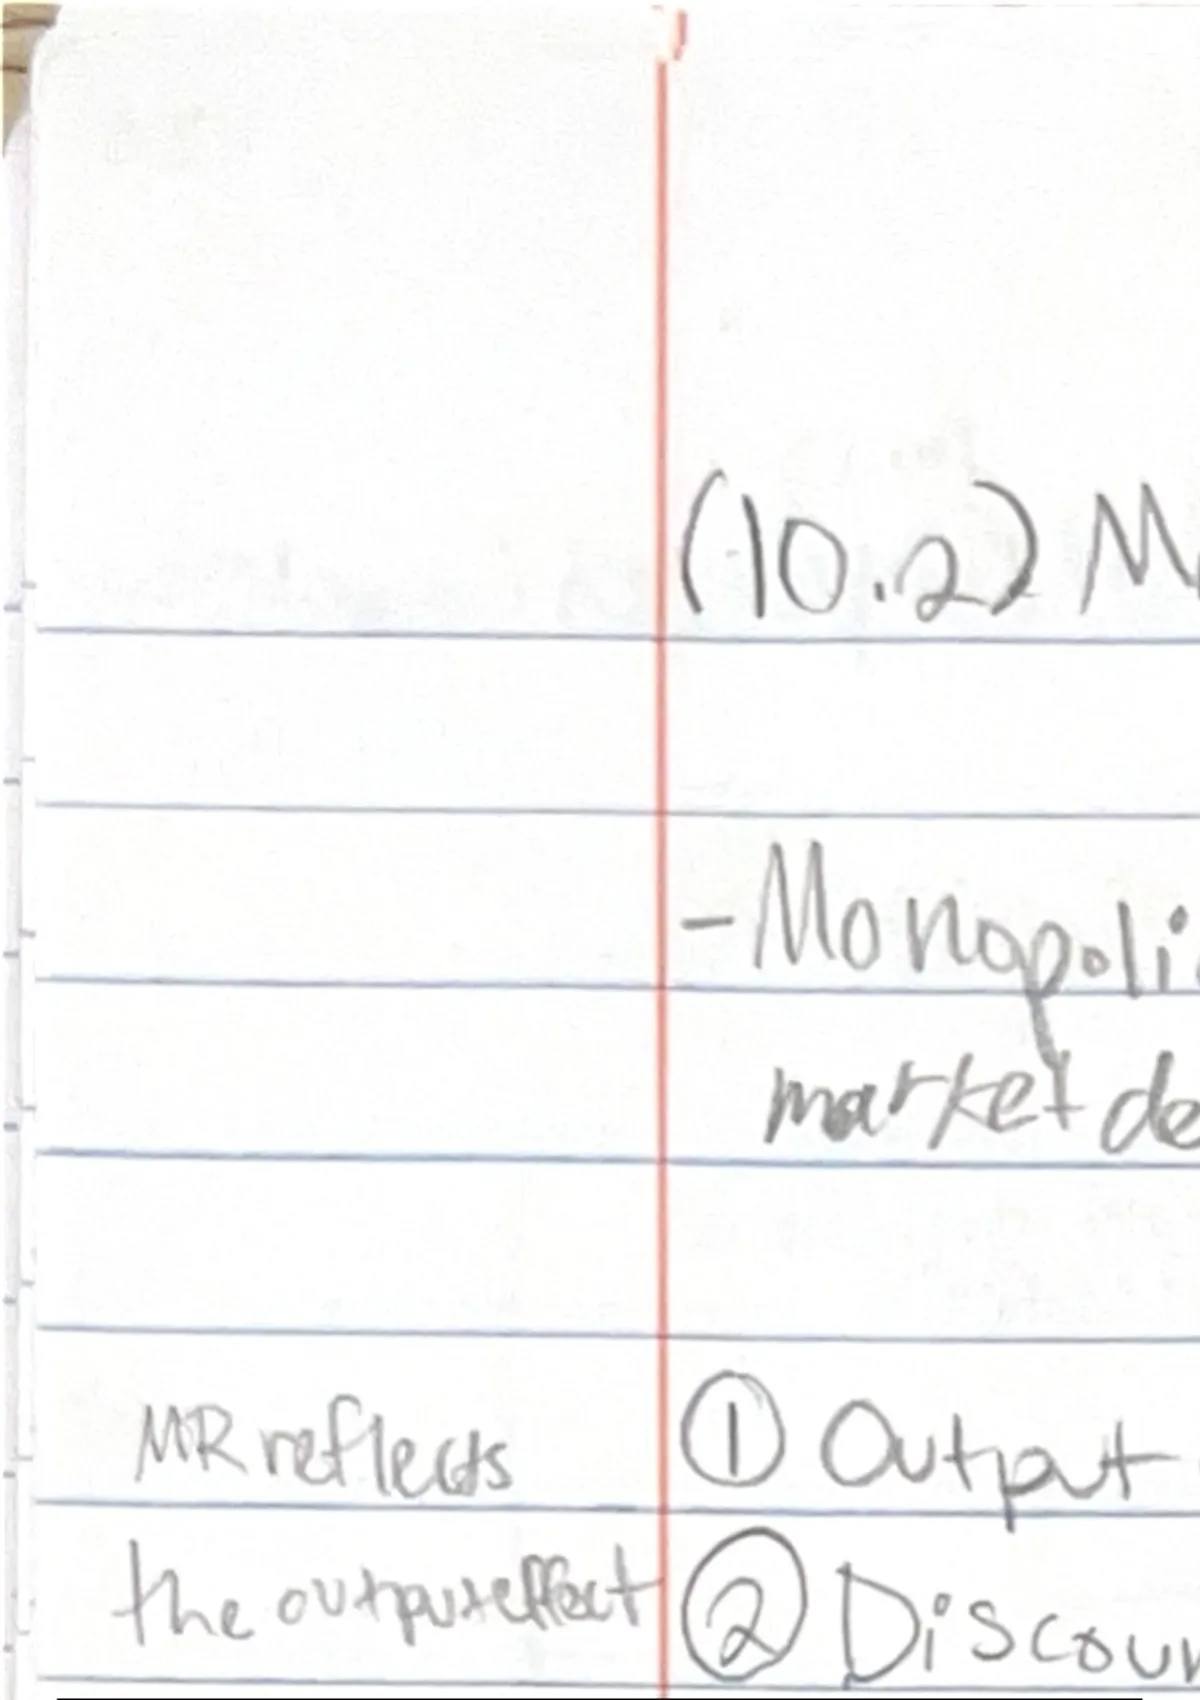 (10.2) M
- Monopoli
market de
MR reflects
the output effect
① Output
② Discoun